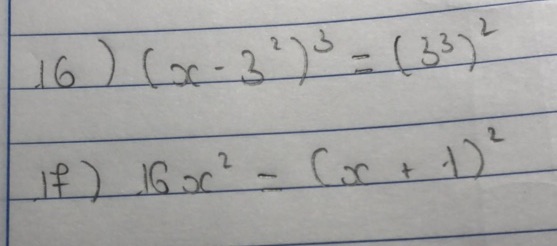 16) (x - 3²)³ = (3³)²
17) 16x² - (x + 1)²